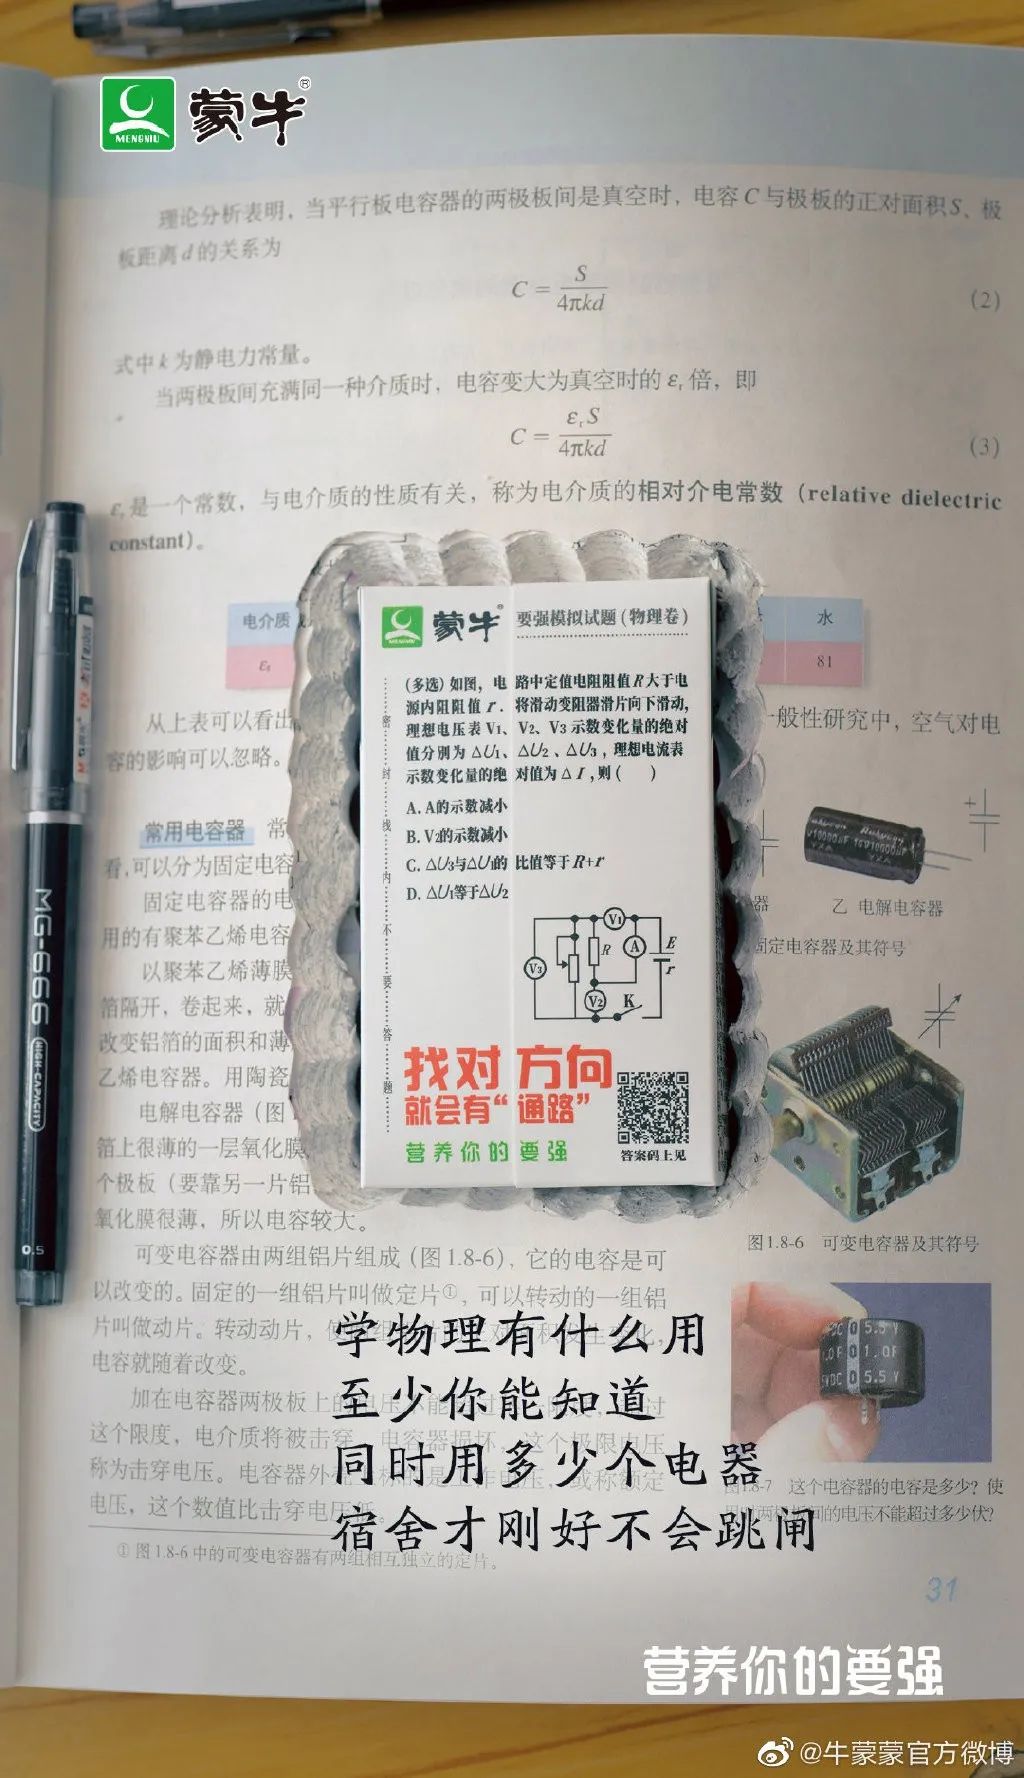 MENGNIU 蒙牛®
理论分析表明，当平行板电容器的两极板间是真空时，电容C与极板的正对面积S、极
板距离d的关系为
C = S/4πkd (2)
式中k为静电力常量。
当两极板间充满同一种介质时，电容变大为真空时的εr倍，即
C = εrS/4πkd (3)
εr是一个常数，与电介质的性质有关，称为电介质的相对介电常数（relative dielectric
constant）。
电介质
水
εr
81
从上表可以看出
一般性研究中，空气对电
容的影响可以忽略。
常用电容器 常
看，可以分为固定电容
固定电容器的电
用的有聚苯乙烯电容
以聚苯乙烯薄膜
箔隔开，卷起来，就
改变铝箔的面积和薄
乙烯电容器。用陶瓷
电解电容器（图
箔上很薄的一层氧化膜
个极板（要靠另一片铝
氧化膜很薄，所以电容较大。
可变电容器由两组铝片组成（图1.8-6），它的电容是可
以改变的。固定的一组铝片叫做定片①，可以转动的一组铝
片叫做动片。转动动片，使
电容就随着改变。
加在电容器两极板上的
这个限度，电介质将被击穿，电容器损坏，这个极限电压
称为击穿电压。电容器外
电压，这个数值比击穿电压低。
①图1.8-6中的可变电容器有两组相互独立的定片。
MENGNIU 蒙牛® 要强模拟试题（物理卷）
（多选）如图，电路中定值电阻阻值R大于电
源内阻阻值r．将滑动变阻器滑片向下滑动，
理想电压表V1、V2、V3示数变化量的绝对
值分别为△U1、△U2、△U3，理想电流表
示数变化量的绝对值为△I，则（ ）
A. A的示数减小
B. V2的示数减小
C. △U3与△I的比值等于R+r
D. △U1等于△U2
密封线内不要答题
V1
R
A
E
r
V3
V2
K
找对方向
就会有“通路”
营养你的要强
答案码上见
乙 电解电容器
固定电容器及其符号
图1.8-6 可变电容器及其符号
5.5V
1.0F
5.5V
这个电容器的电容是多少？使
用时两极板间的电压不能超过多少伏？
31
MG-666
HIGH CAPACITY
0.5
学物理有什么用
至少你能知道
同时用多少个电器
宿舍才刚好不会跳闸
营养你的要强
@牛蒙蒙官方微博